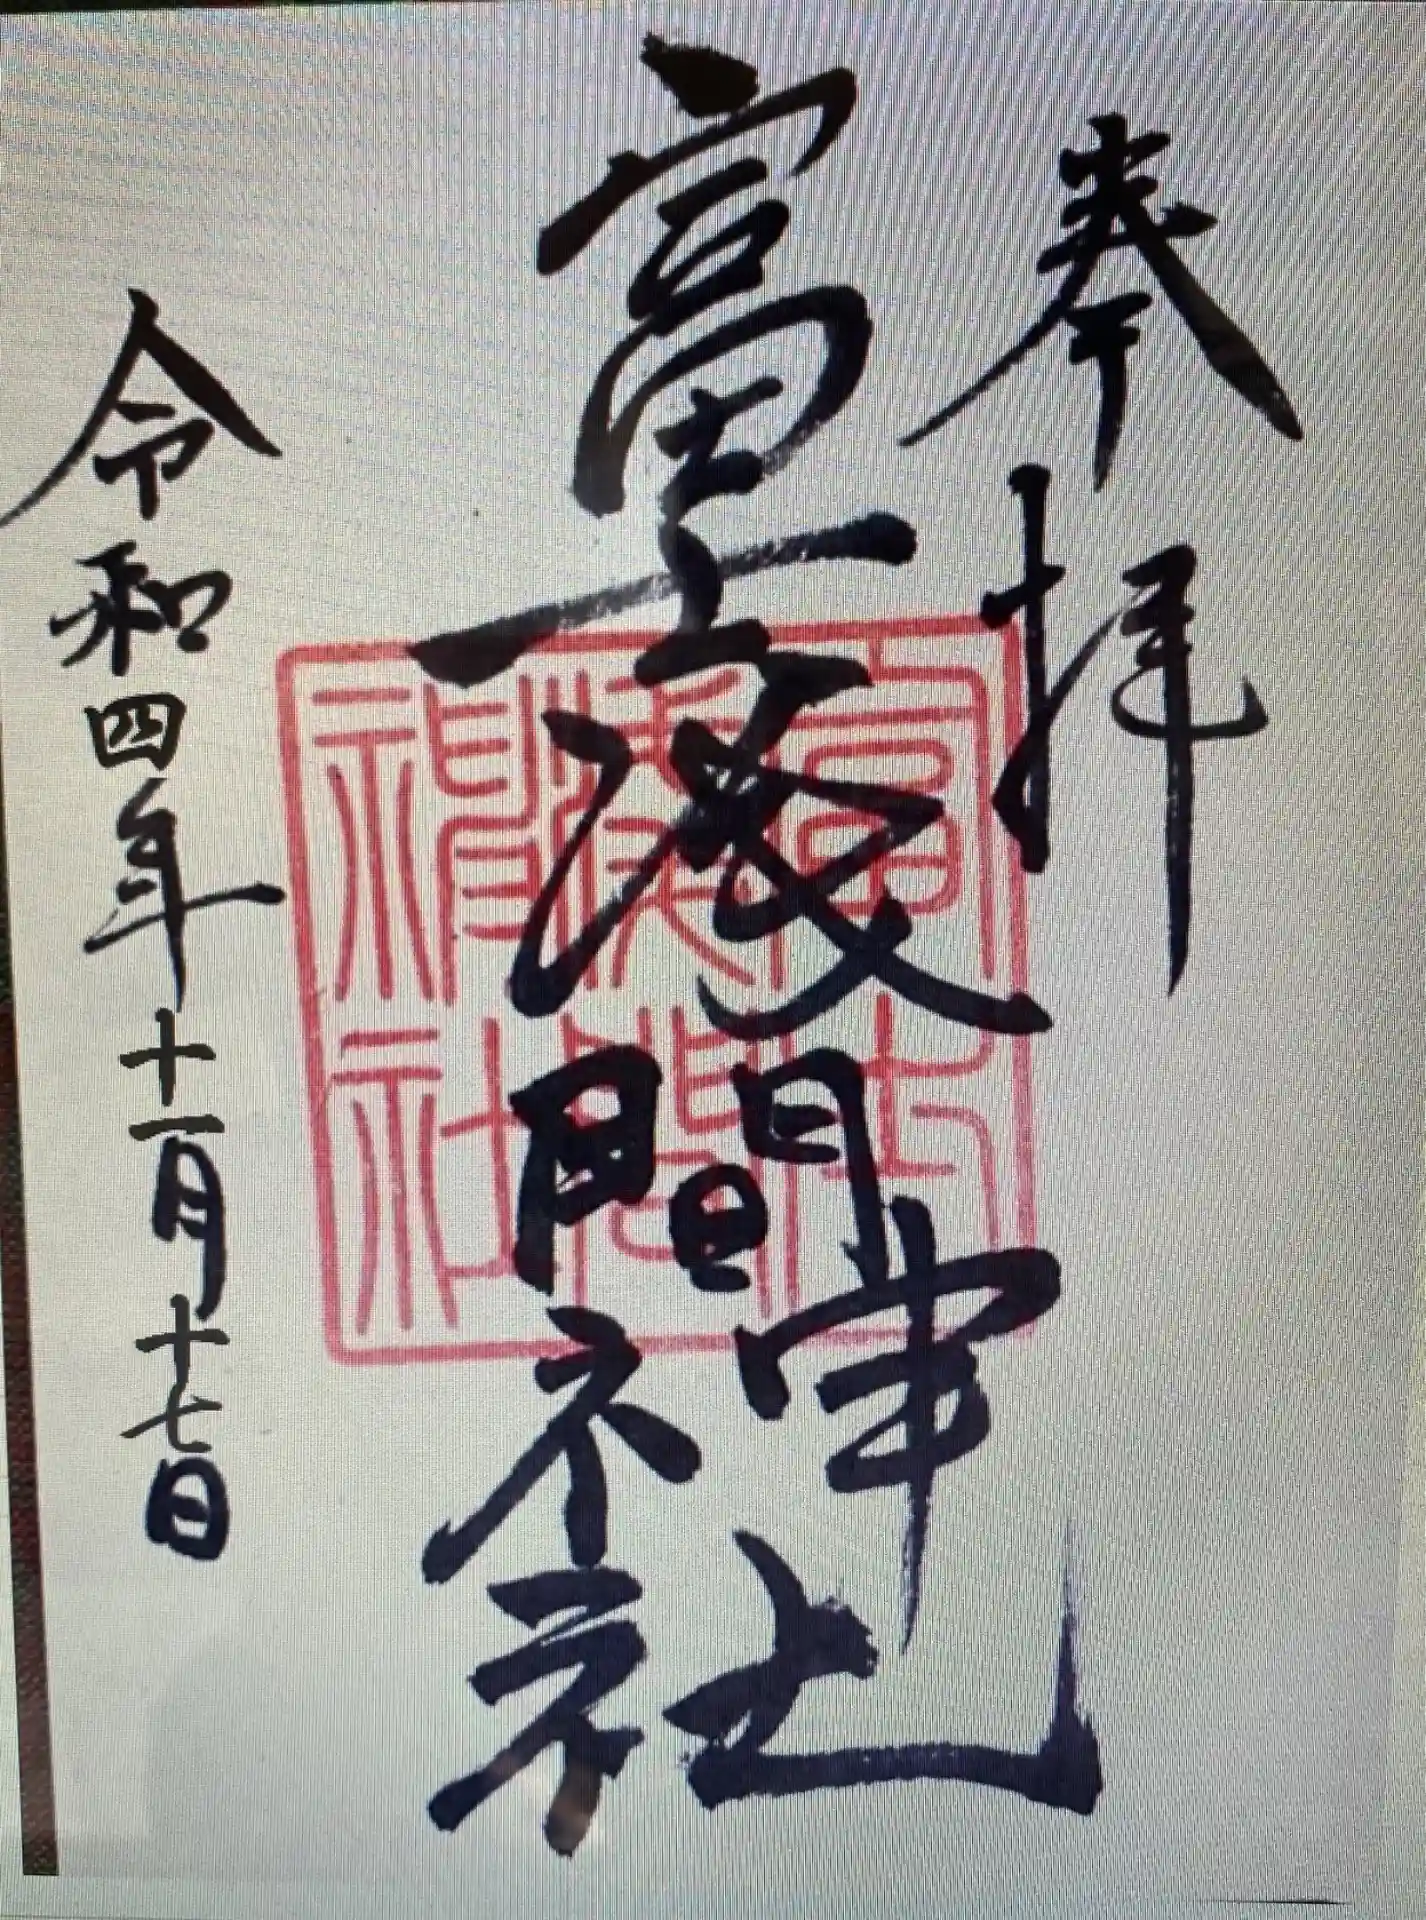 奉拝
富士浅間神社
富士浅間神社
令和四年十一月十七日